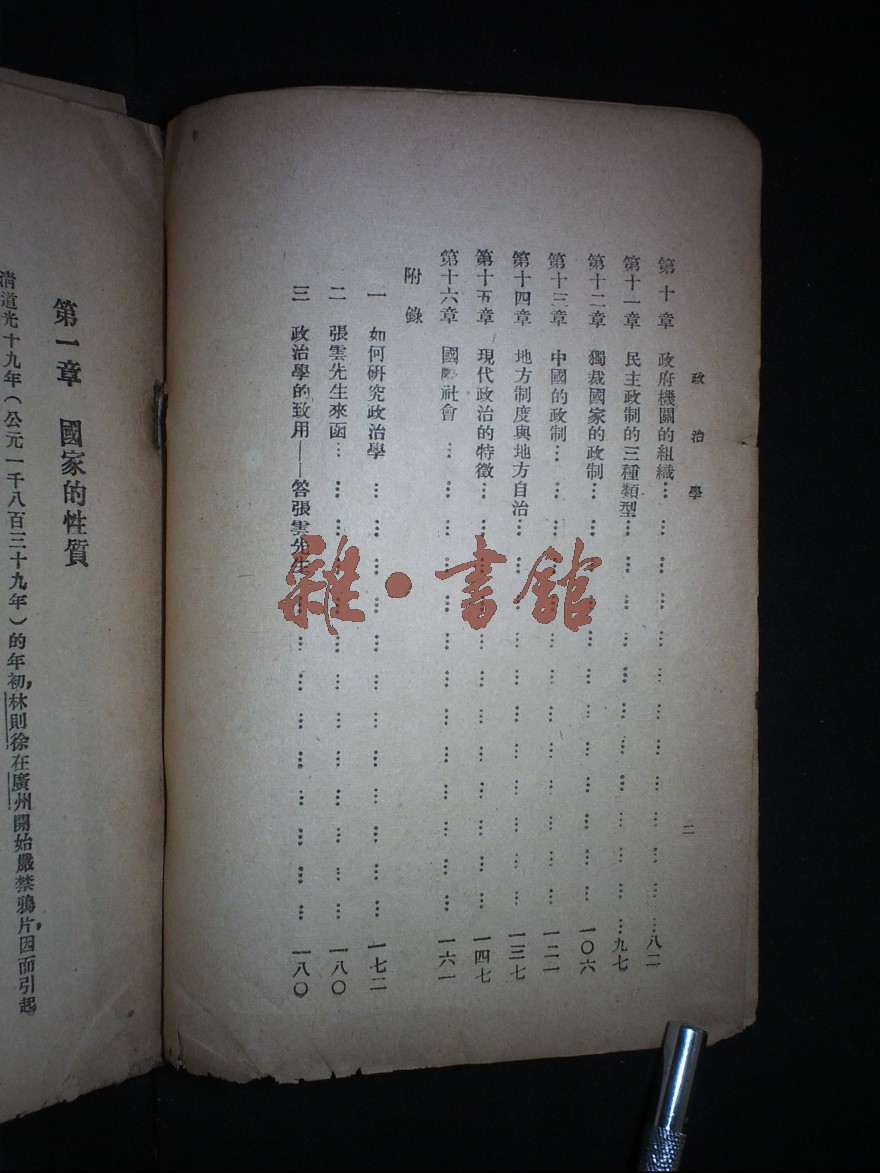 政治學
二
第十章 政府機關的組織… … … … … … … … …八二
第十一章 民主政制的三種類型… … … … … … … … …九七
第十二章 獨裁國家的政制… … … … … … … … …一〇六
第十三章 中國的政制… … … … … … … … …一二一
第十四章 地方制度與地方自治… … … … … … … … …一三七
第十五章 現代政治的特徵… … … … … … … … …一四七
第十六章 國際社會 … … … … … … … … …一六一
附錄
一 如何研究政治學 … … … … … … … … …一七二
二 張雲先生來函… … … … … … … … …一八〇
三 政治學的致用——答張雲先生… … … … … … … …一八〇
第一章 國家的性質
清道光十九年(公元一千八百三十九年)的年初,林則徐在廣州開始嚴禁鴉片,因而引起
雜·書館